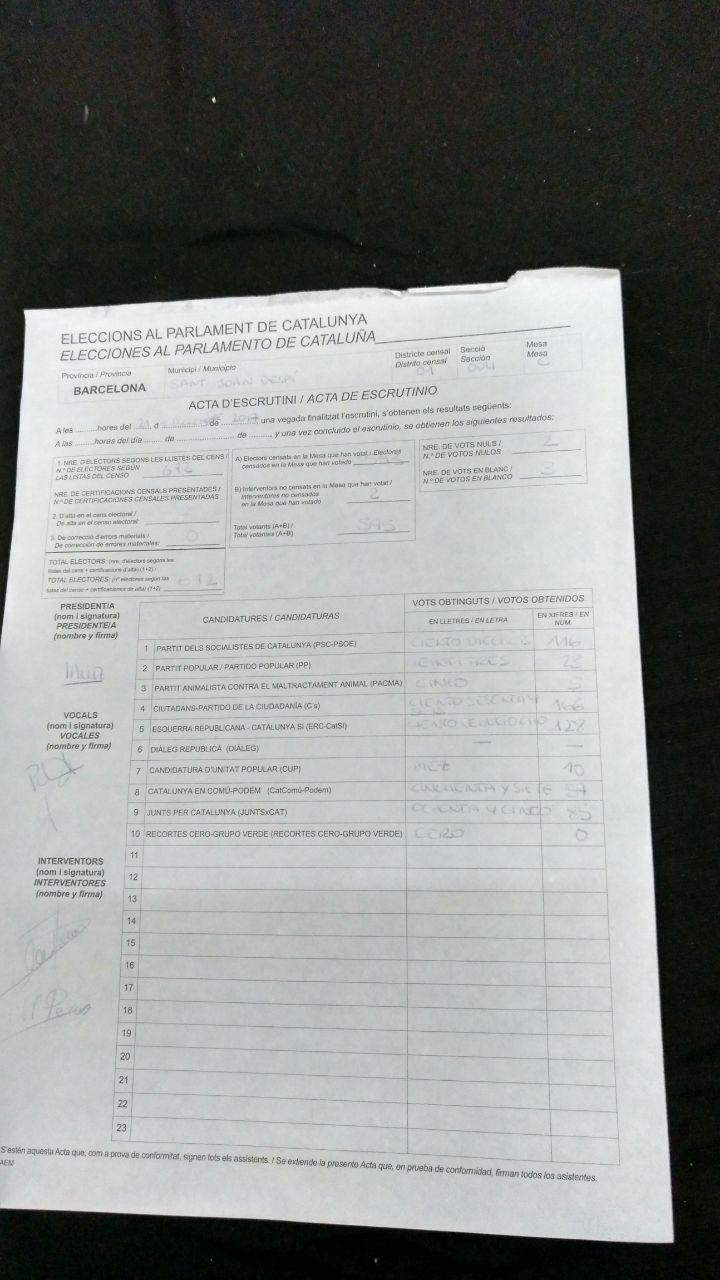 ELECCIONS AL PARLAMENT DE CATALUNYA
ELECCIONES AL PARLAMENTO DE CATALUÑA
Província / Provincia Municipi / Municipio Districte censal Secció Mesa
Distrito censal Sección Mesa
BARCELONA SANT JOAN DESPÍ 01 004 C
ACTA D'ESCRUTINI / ACTA DE ESCRUTINIO
A les ..........hores del 21 d ............ de 2017 una vegada finalitzat l'escrutini, s'obtenen els resultats següents:
A las ..........horas del día ........ de ........................ de ........., y una vez concluido el escrutinio, se obtienen los siguientes resultados:
1. NRE. D'ELECTORS SEGONS LES LLISTES DEL CENS /
N.º DE ELECTORES SEGÚN
LAS LISTAS DEL CENSO 672
NRE. DE CERTIFICACIONS CENSALS PRESENTADES /
N.º DE CERTIFICACIONES CENSALES PRESENTADAS
2. D'alta en el cens electoral /
De alta en el censo electoral:
3. De correcció d'errors materials / 0
De corrección de errores materiales:
TOTAL ELECTORS: (nre. d'electors segons les
llistes del cens + certificacions d'alta) (1+2) /
TOTAL ELECTORES: (nº electores según las
listas del censo + certificaciones de alta) (1+2) 672
A) Electors censats en la Mesa que han votat / Electores
censados en la Mesa que han votado
B) Interventors no censats en la Mesa que han votat /
Interventores no censados
en la Mesa que han votado 2
Total votants (A+B) /
Total votantes (A+B) 595
NRE. DE VOTS NULS /
N.º DE VOTOS NULOS 2
NRE. DE VOTS EN BLANC /
N.º DE VOTOS EN BLANCO 3
PRESIDENT/A
(nom i signatura)
PRESIDENTE/A
(nombre y firma)
VOCALS
(nom i signatura)
VOCALES
(nombre y firma)
INTERVENTORS
(nom i signatura)
INTERVENTORES
(nombre y firma)
CANDIDATURES / CANDIDATURAS VOTS OBTINGUTS / VOTOS OBTENIDOS
EN LLETRES / EN LETRA EN XIFRES / EN NÚM.
1 PARTIT DELS SOCIALISTES DE CATALUNYA (PSC-PSOE) CIENTO DIECISEIS 116
2 PARTIT POPULAR / PARTIDO POPULAR (PP) VEINTITRES 23
3 PARTIT ANIMALISTA CONTRA EL MALTRACTAMENT ANIMAL (PACMA) CINCO 5
4 CIUTADANS-PARTIDO DE LA CIUDADANÍA (C's) CIENTO SESENTA Y SEIS 166
5 ESQUERRA REPUBLICANA - CATALUNYA SÍ (ERC-CatSí) CIENTO VEINTIOCHO 128
6 DIÀLEG REPUBLICÀ (DIÀLEG) — —
7 CANDIDATURA D'UNITAT POPULAR (CUP) DIEZ 10
8 CATALUNYA EN COMÚ-PODEM (CatComú-Podem) CINCUENTA Y SIETE 57
9 JUNTS PER CATALUNYA (JUNTSxCAT) OCHENTA Y CINCO 85
10 RECORTES CERO-GRUPO VERDE (RECORTES CERO-GRUPO VERDE) CERO 0
11
12
13
14
15
16
17
18
19
20
21
22
23
S'estén aquesta Acta que, com a prova de conformitat, signen tots els assistents. / Se extiende la presente Acta que, en prueba de conformidad, firman todos los asistentes.
AEM